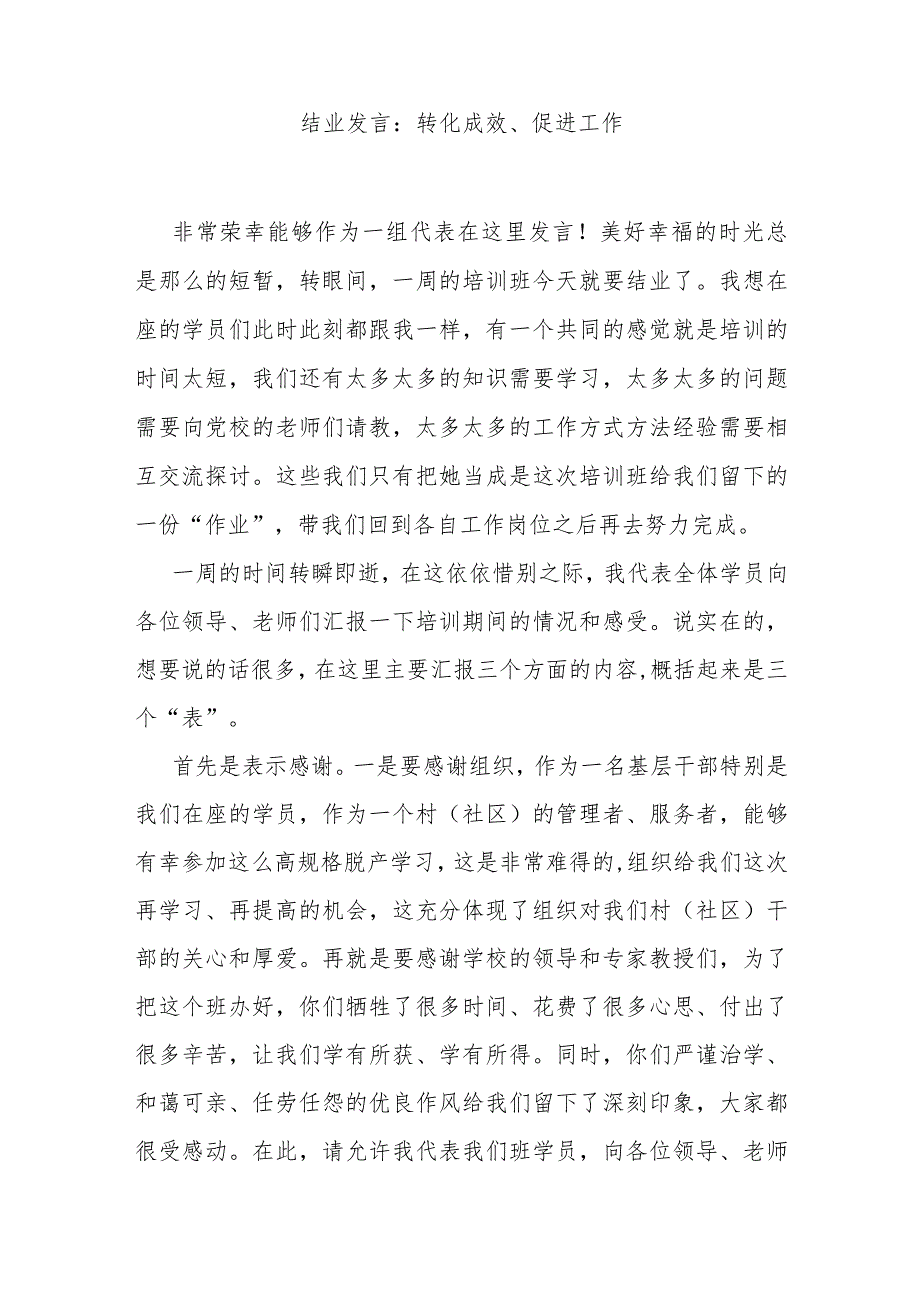 结业发言：转化成效、促进工作
非常荣幸能够作为一组代表在这里发言！美好幸福的时光总
是那么的短暂，转眼间，一周的培训班今天就要结业了。我想在
座的学员们此时此刻都跟我一样，有一个共同的感觉就是培训的
时间太短，我们还有太多太多的知识需要学习，太多太多的问题
需要向党校的老师们请教，太多太多的工作方式方法经验需要相
互交流探讨。这些我们只有把她当成是这次培训班给我们留下的
一份“作业”，带我们回到各自工作岗位之后再去努力完成。
一周的时间转瞬即逝，在这依依惜别之际，我代表全体学员向
各位领导、老师们汇报一下培训期间的情况和感受。说实在的，
想要说的话很多，在这里主要汇报三个方面的内容,概括起来是三
个“表”。
首先是表示感谢。一是要感谢组织，作为一名基层干部特别是
我们在座的学员，作为一个村（社区）的管理者、服务者，能够
有幸参加这么高规格脱产学习，这是非常难得的,组织给我们这次
再学习、再提高的机会，这充分体现了组织对我们村（社区）干
部的关心和厚爱。再就是要感谢学校的领导和专家教授们，为了
把这个班办好，你们牺牲了很多时间、花费了很多心思、付出了
很多辛苦，让我们学有所获、学有所得。同时，你们严谨治学、
和蔼可亲、任劳任怨的优良作风给我们留下了深刻印象，大家都
很受感动。在此，请允许我代表我们班学员，向各位领导、老师